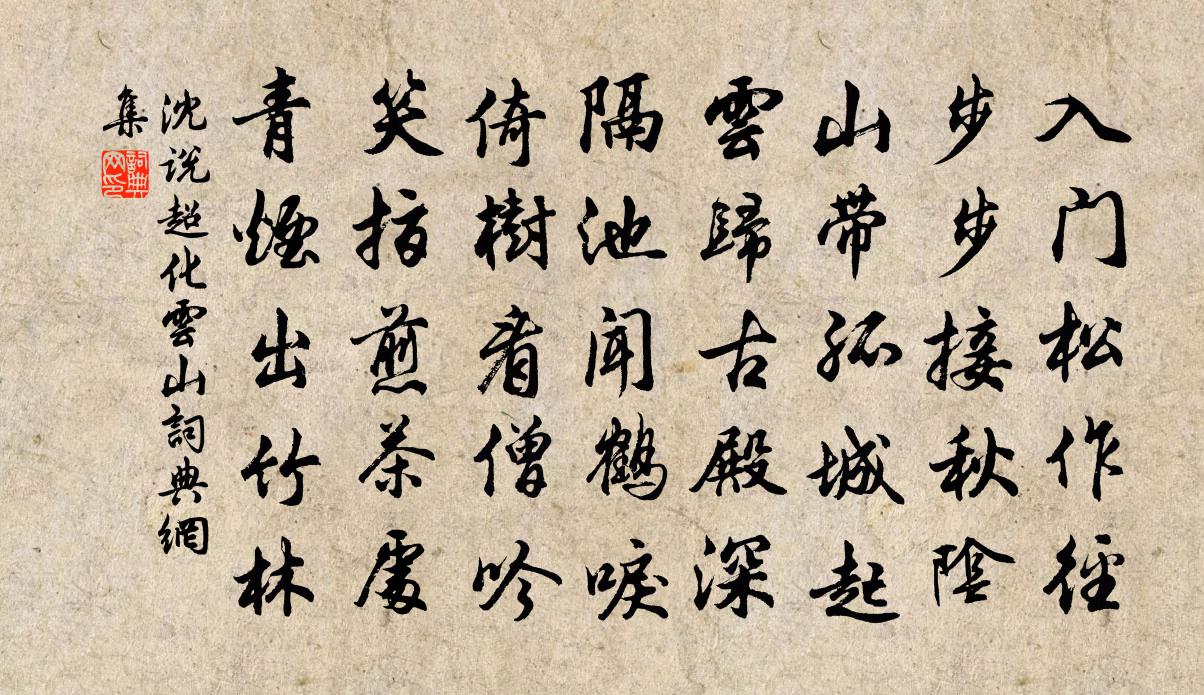 入门松作徑
步步接秋陰
山带孤城起
雲歸古殿深
隔池聞鶴唳
倚樹看僧吟
笑指煎茶處
青煙出竹林
沈说超化雲山詞典網
集
詞典网印